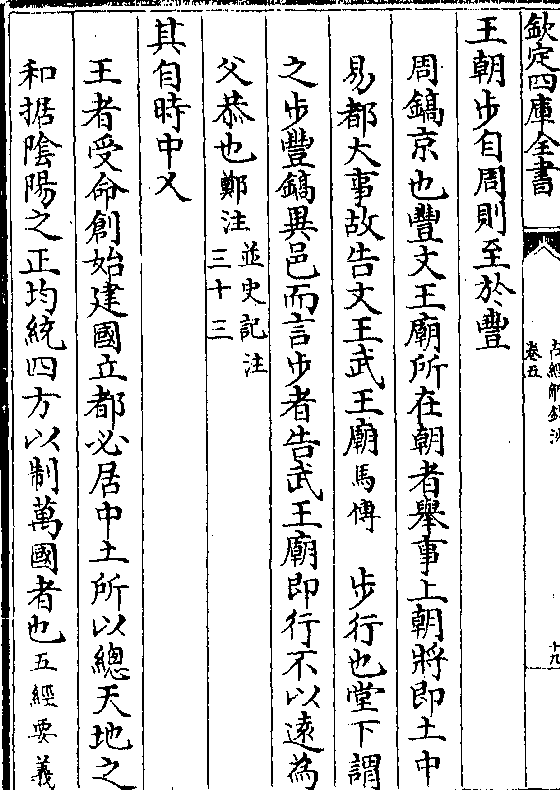 欽定四庫全書
卷五
十九
王朝步自周則至於豐
周鎬京也豐文王廟所在朝者舉事上朝將即土中
易都大事故告文王武王廟馬傳 步行也堂下謂
之步豐鎬異邑而言步者告武王廟即行不以遠為
父恭也鄭注並史記注三十三
其自時中乂
王者受命創始建國立都必居中土所以總天地之
和据陰陽之正均統四方以制萬國者也五經要義